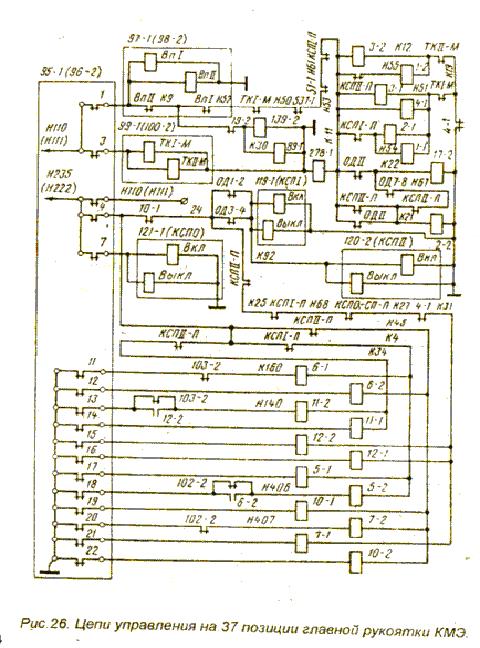 97-1(98-2)
ВпI
ВпII
95-1(96-2)
3-2 К12 ТКII-М
1
ВпII К9 ВпI К57 ТКI-М Н50 537-1
К55 1-2
КСПII-П 3-1 Н51 ТКII-М
4-1
Н110
(Н111)
99-1(100-2)
19-2 139-2
К53
К11
КСПI-П 2-1
3
ТКI-М
ТКII-М
К30 89-1
278-1
Н54 1-1
4-1
ОДII К22 17-2
Н235
(Н222)
Н110 (Н111)
ОД1-2
119-1(КСПI)
ОД7-8 Н61
6
10-1 24 ОД3-4
Вкл
КСПII-П КСПII-П
7
121-1(КСПО)
Выкл
ОДII К21
Вкл
КСПII-П
К92
120-2(КСПII) 2-2
Выкл
Вкл
Выкл
К25 КСПI-П Н68 КСПО-СП-П К27 4-1 К31
КСПII-П Н43
КСПII-П КСПI-П К4
К34
11 103-2 К160 6-1
12 6-2
13 103-2 Н140 11-2
14 12-2 11-1
15 12-2
16 12-1
17 5-1
18 102-2 Н406 5-2
19 6-2 10-1
20 102-2 Н407 7-2
21 7-1
22 10-2
Рис.26. Цепи управления на 37 позиции главной рукоятки КМЭ.